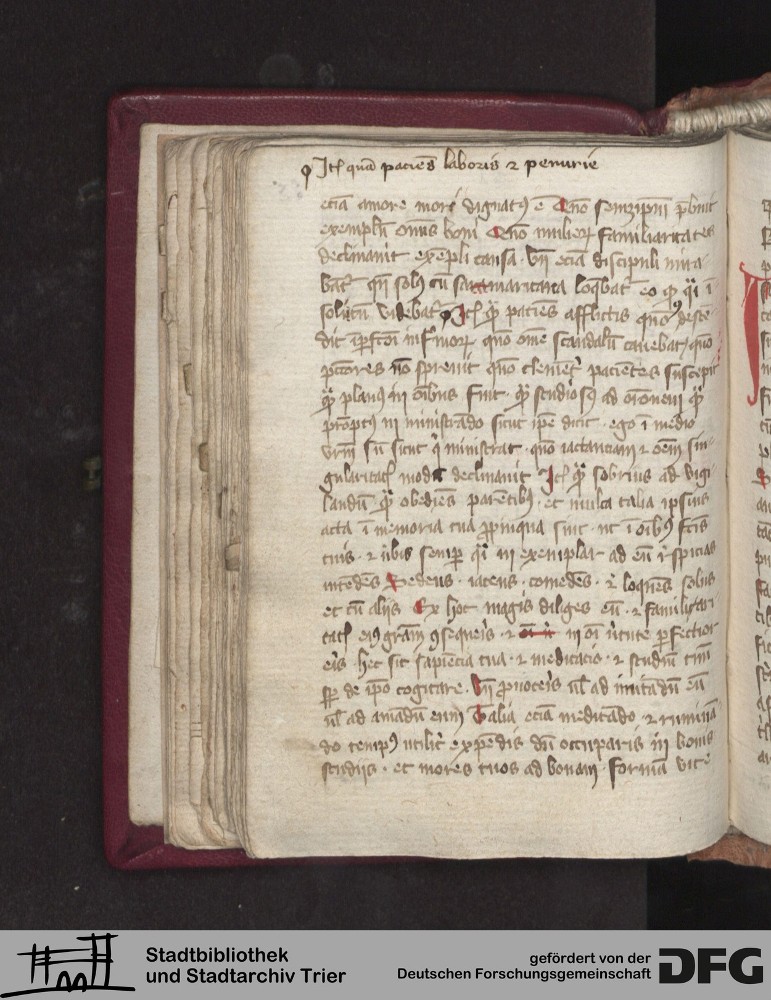 Itē quā paciēs laboris ⁊ penurie
eciā amore mori dignatꝰ ē Quō semꝫipm̄ p̄buit
exemplū omīs boni Quō mulieꝝ familiaritates
declinauit exēpli causa. vn̄ eciā discipuli mira-
batʳ qn̄ solꝰ cū samaritana loq̄bat eo ꝙ q̄i ī
solitū videbatʳ Itē ꝙ̄ paciēs afflictis quō desce
dit īꝑfcōi infirmoꝝ quō om̄e scandalū cauebat, quō
pctōres nō spreuit quō clemēt' paciētes suscepit
ꝙ̄ planꝰ in oībus fuit. ꝙ̄ studiosꝰ ad oronem ꝙ̄
promptꝰ in ministrādo sicut ipē dicit. ego ī medio
vrm̄ sū sicut q̄ ministrat. quō iactantiam ⁊ oēm sin-
gularitatē modū declinauit Itē ꝙ̄ sobrius ad vigi
landū. ꝙ̄ obediēs parētibꝰ. et multa talia ipsius
acta ī memoria tua ꝓpinqua sint. ut ī oībꝰ fctis
tuis. ⁊ v̄bis semꝑ q̄i in exemplar ad eū r̄spicias
incedēs sedens. iacens. comedēs. ⁊ loquēs solus
et cū aliis Ex hoc magis diliges eū. ⁊ familiari
tatē eiꝰ grām ꝯsequeris. ⁊ in oī v̄tute perfectior
eris. hec sit sapiēcia tua. ⁊ meditacio. ⁊ studiū tuū
sꝑ de ipō cogitare. Vn̄ ꝓuoceris ūl ad imitādū eū
ūl ad amādū eum Talia eciā meditādo ⁊ ruminā
do tempꝰ utilit' expēdis dū occuparis in bonis
studijs. et mores tuos ad bonam formā vite
Stadtbibliothek
und Stadtarchiv Trier
gefördert von der
Deutschen Forschungsgemeinschaft
DFG